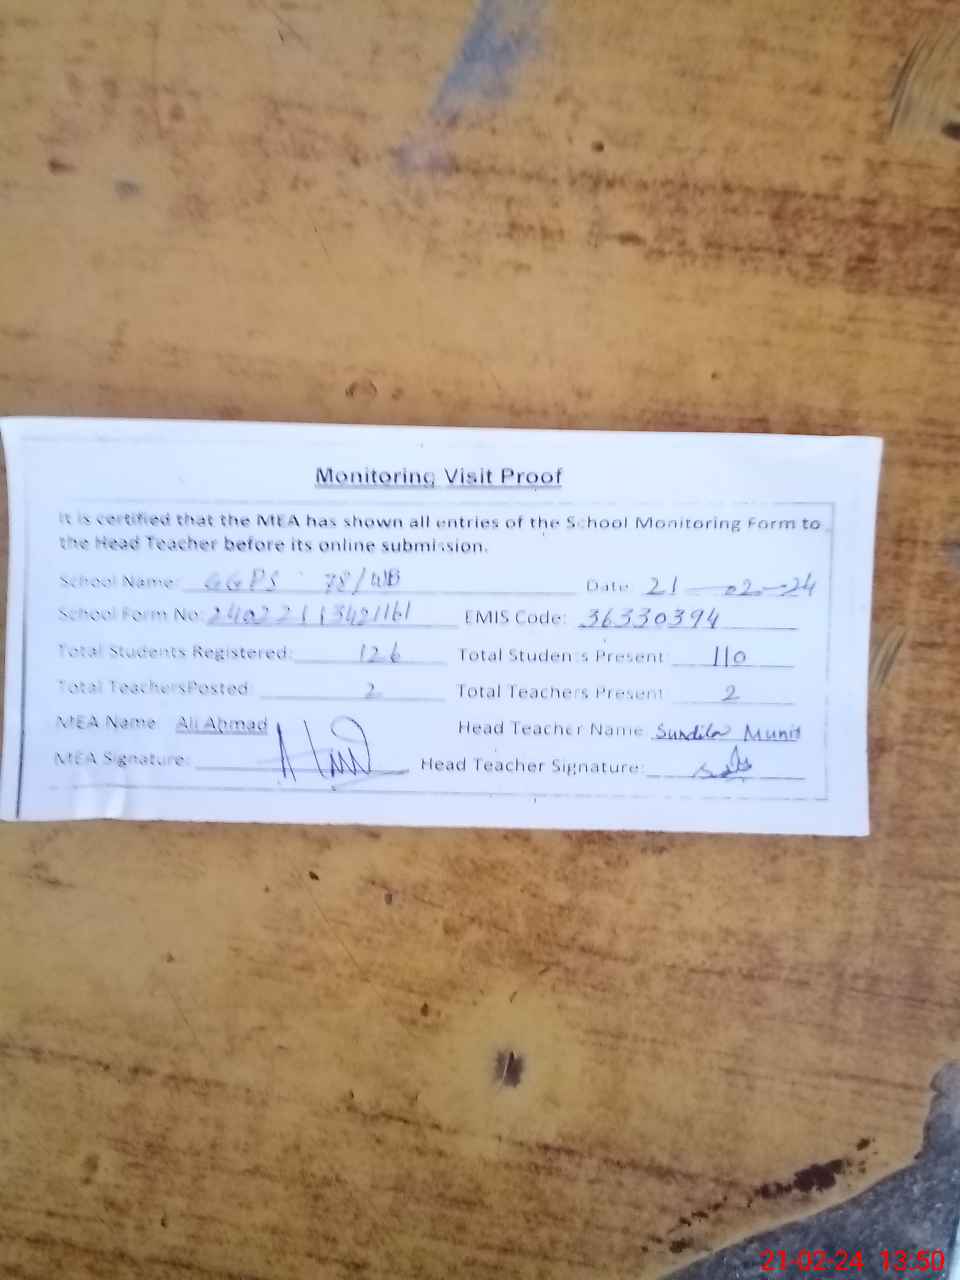 Monitoring Visit Proof
It is certified that the MEA has shown all entries of the School Monitoring Form to
the Head Teacher before its online submission.
School Name: GGPS 78/WB Date 21-02-24
School Form No: 24022113421161 EMIS Code: 36330394
Total Students Registered: 126 Total Students Present 110
Total TeachersPosted 2 Total Teachers Present 2
MEA Name Ali Ahmad Head Teacher Name
MEA Signature: Head Teacher Signature:
21-02-24 13:50